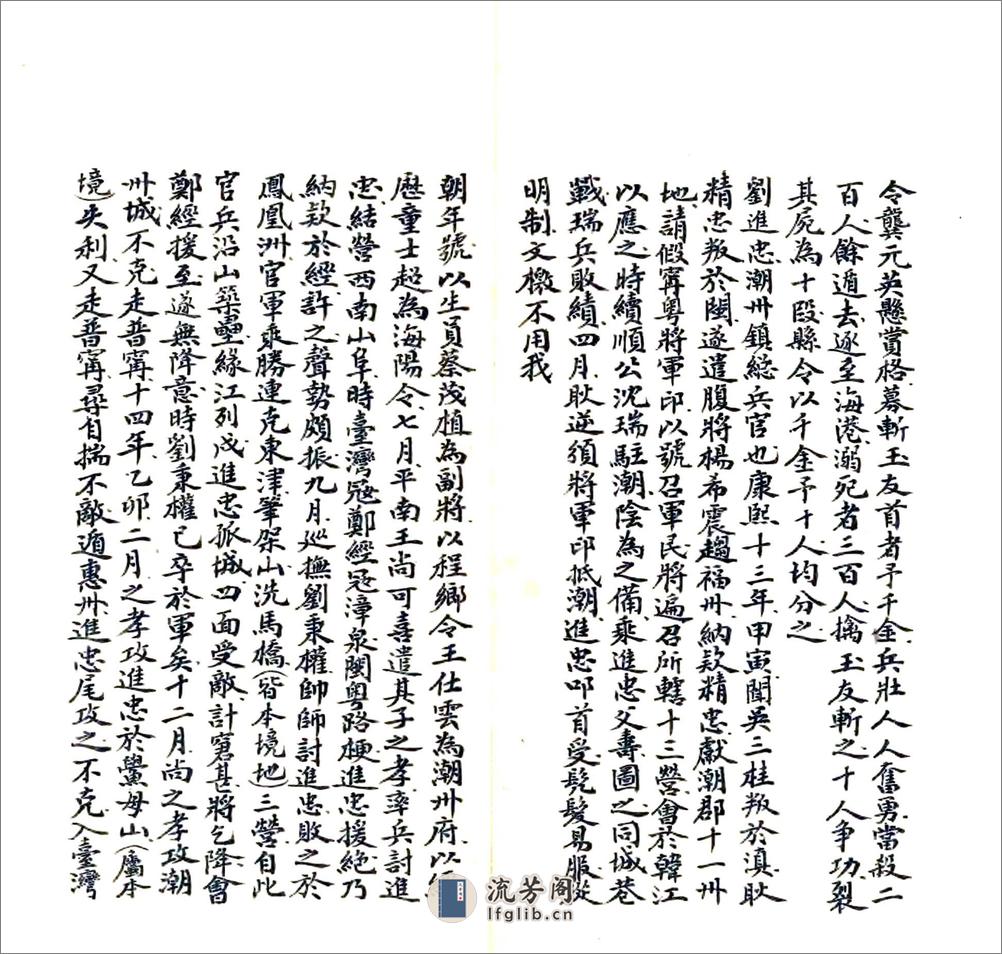 令龔元英懸賞格募斬玉友首者予千金兵壯人人奮勇當殺二
百人餘遁去逐至海港溺死者三百人擒玉友斬之十人争功裂
其屍為十段縣令以千金予十人均分之
劉進忠潮州鎮總兵官也康熙十三年甲寅聞吳三桂叛於滇耿
精忠叛於閩遂遣腹將楊希震趨福州納款精忠獻潮郡十一州
地請假寗粵將軍印以號召軍民將遍召所轄十三營會於韓江
以應之時續順公沈瑞駐潮陰為之備乘進忠父壽圖之同城巷
戰瑞兵敗績四月耿逆頒將軍印抵潮進忠叩首受髡髮易服從
明制文檄不用我
朝年號以生員蔡茂植為副將以程鄉令王仕雲為潮州府以
歷童士超為海陽令七月平南王尚可喜遣其子之孝率兵討進
忠結營西南山阜時臺灣寇鄭經寇漳泉閩粵路梗進忠援絕乃
納款於經許之聲勢頗振九月巡撫劉秉權帥師討進忠敗之於
鳳凰洲官軍乘勝連克東津筆架山洗馬橋(皆本境地)三營自此
官兵沿山築壘緣江列戍進忠孤城四面受敵計窘甚將乞降會
鄭經援至遂無降意時劉秉權已卒於軍矣十二月尚之孝攻潮
州城不克走普寗十四年乙卯二月之孝攻進忠於鱟母山(屬本
境)失利又走普寗尋自揣不敵遁惠州進忠尾攻之不克入臺灣
流芳阁
lfglib.cn